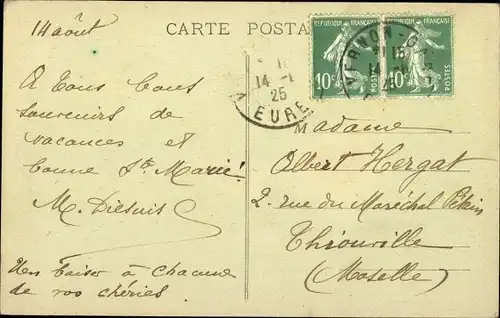 CARTE POSTALE
14 août
A tous bons
souvenirs de
vacances et
bonne Ste Marie!
M.
Un baiser à chacune
de vos chéries.
REPUBLIQUE FRANÇAISE
10c POSTES
REPUBLIQUE FRANÇAISE
10c POSTES
VERNON
15
14
25
EURE
Madame
Albert Hergat
2. rue du Maréchal Pétain
Thionville
(Moselle)